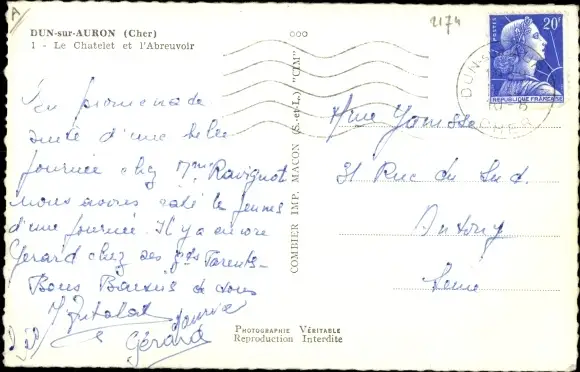 A
DUN-sur-AURON (Cher)
1 - Le Chatelet et l'Abreuvoir
En promenade
suite d'une belle
journée chez Mme Ravignot
nous avons fêté le jeunes
d'une journée. Il y a encore
Gérard chez ses gds Parents -
Bons Baisers de tous
Gérard
COMBIER IMP. MACON (S.-et-L.) "CIM"
PHOTOGRAPHIE VÉRITABLE
Reproduction Interdite
2174
POSTES
20F
REPUBLIQUE FRANÇAISE
DUN-S
10-8
CHER
Mme
31 Rue du Sud.
Antony
Seine